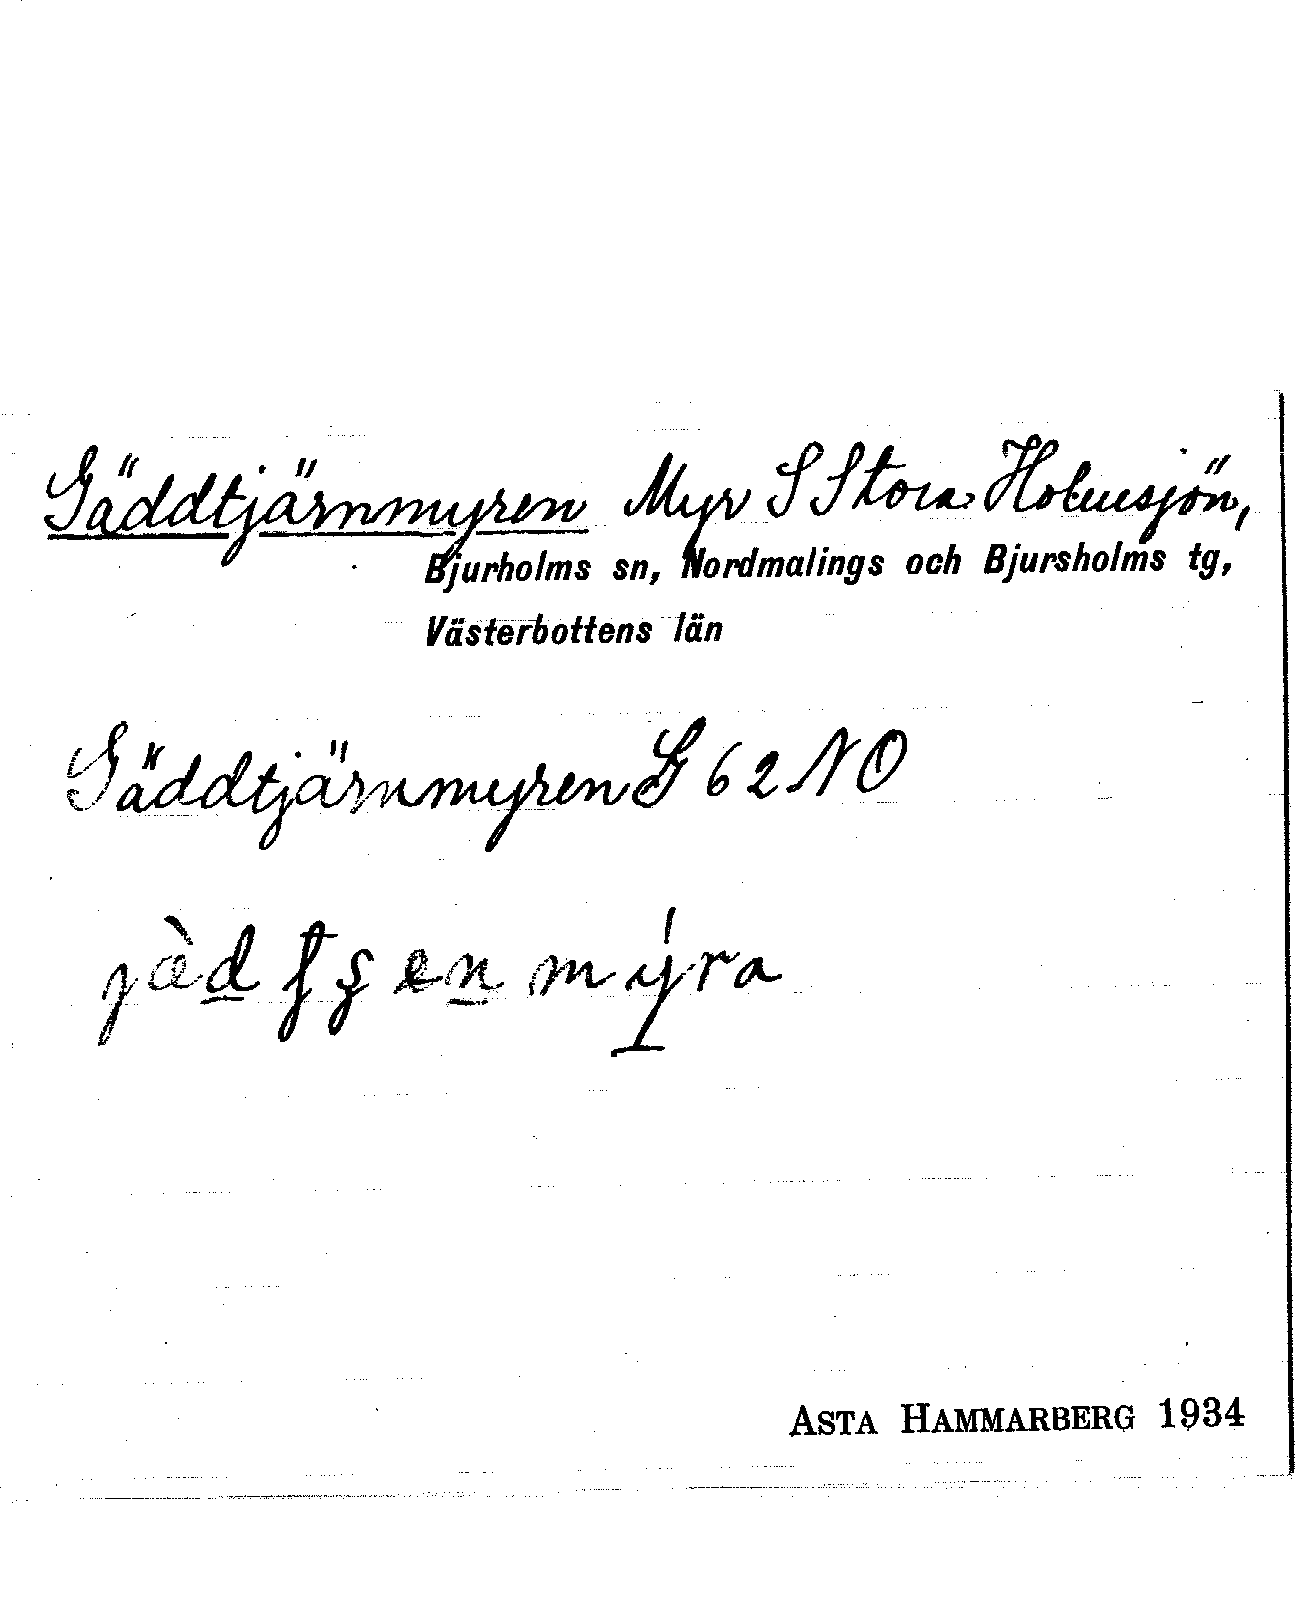 Gäddtjärnmyren Myr S Stora Holmsjön,
Bjurholms sn, Nordmalings och Bjursholms tg,
Västerbottens län
Gäddtjärnmyren G 62 NO
myra
ASTA HAMMARBERG 1934